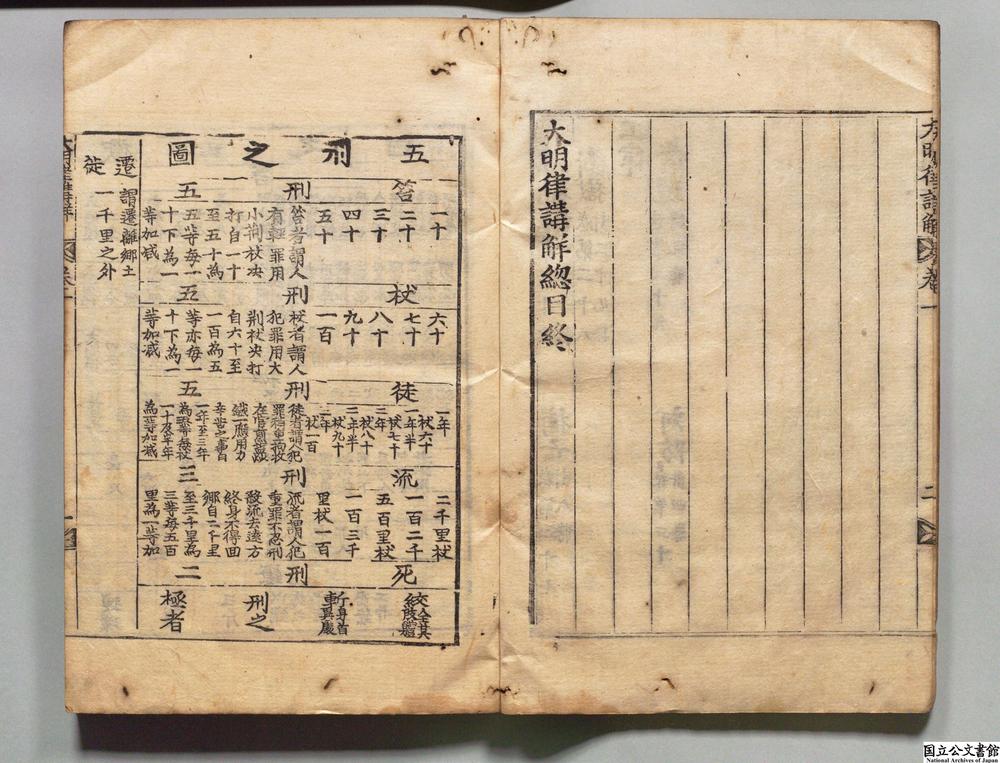 大明律講解卷一
二
大明律講解總目終
五刑之圖
笞刑五
一十
二十
三十
四十
五十
笞者謂人
有輕罪用
小荆杖决
打自一十
至五十為
五等每一
十下為一
等加减
杖刑五
六十
七十
八十
九十
一百
杖者謂人
犯罪用大
荆杖决打
自六十至
一百為五
等亦每一
十下為一
等加减
徒刑五
一年
杖六十
一年半
杖七十
二年
杖八十
二年半
杖九十
三年
杖一百
徒者謂人犯
罪稍重拘收
在官
一應用力
辛苦之事自
一年至三年
為五等每杖
一十及半年
為一等加减
流刑三
二千里杖
一百二千
五百里杖
一百三千
里杖一百
流者謂人犯
重罪不忍刑
殺流去遠方
終身不得回
鄉自二千里
至三千里為
三等每五百
里為一等加
死刑二
絞全其
肢體
斬身首
異處
刑之
極者
遷徙
謂遷離鄉土
一千里之外
国立公文書館
National Archives of Japan